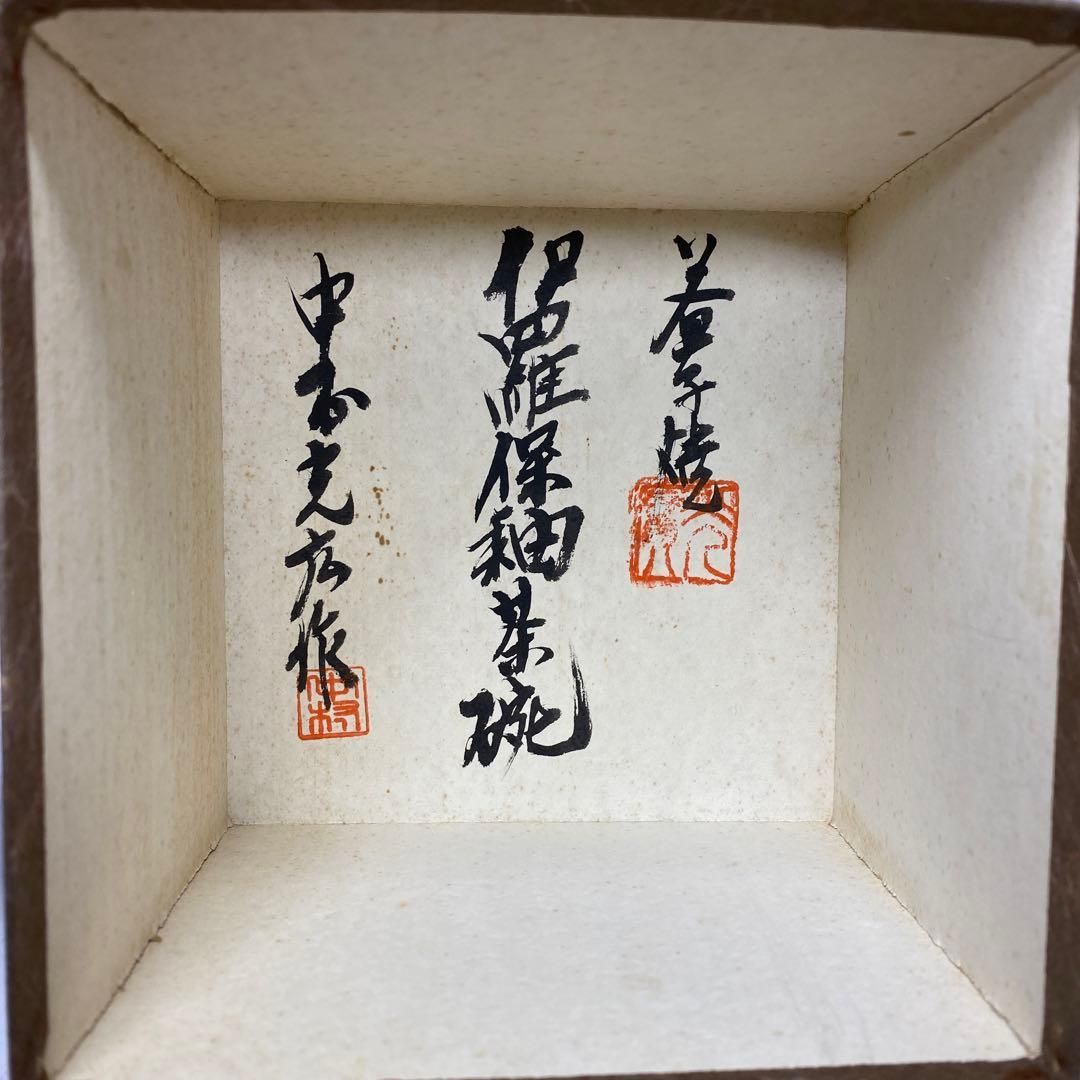 益子焼
伊羅保釉茶碗
中村光広作
中村